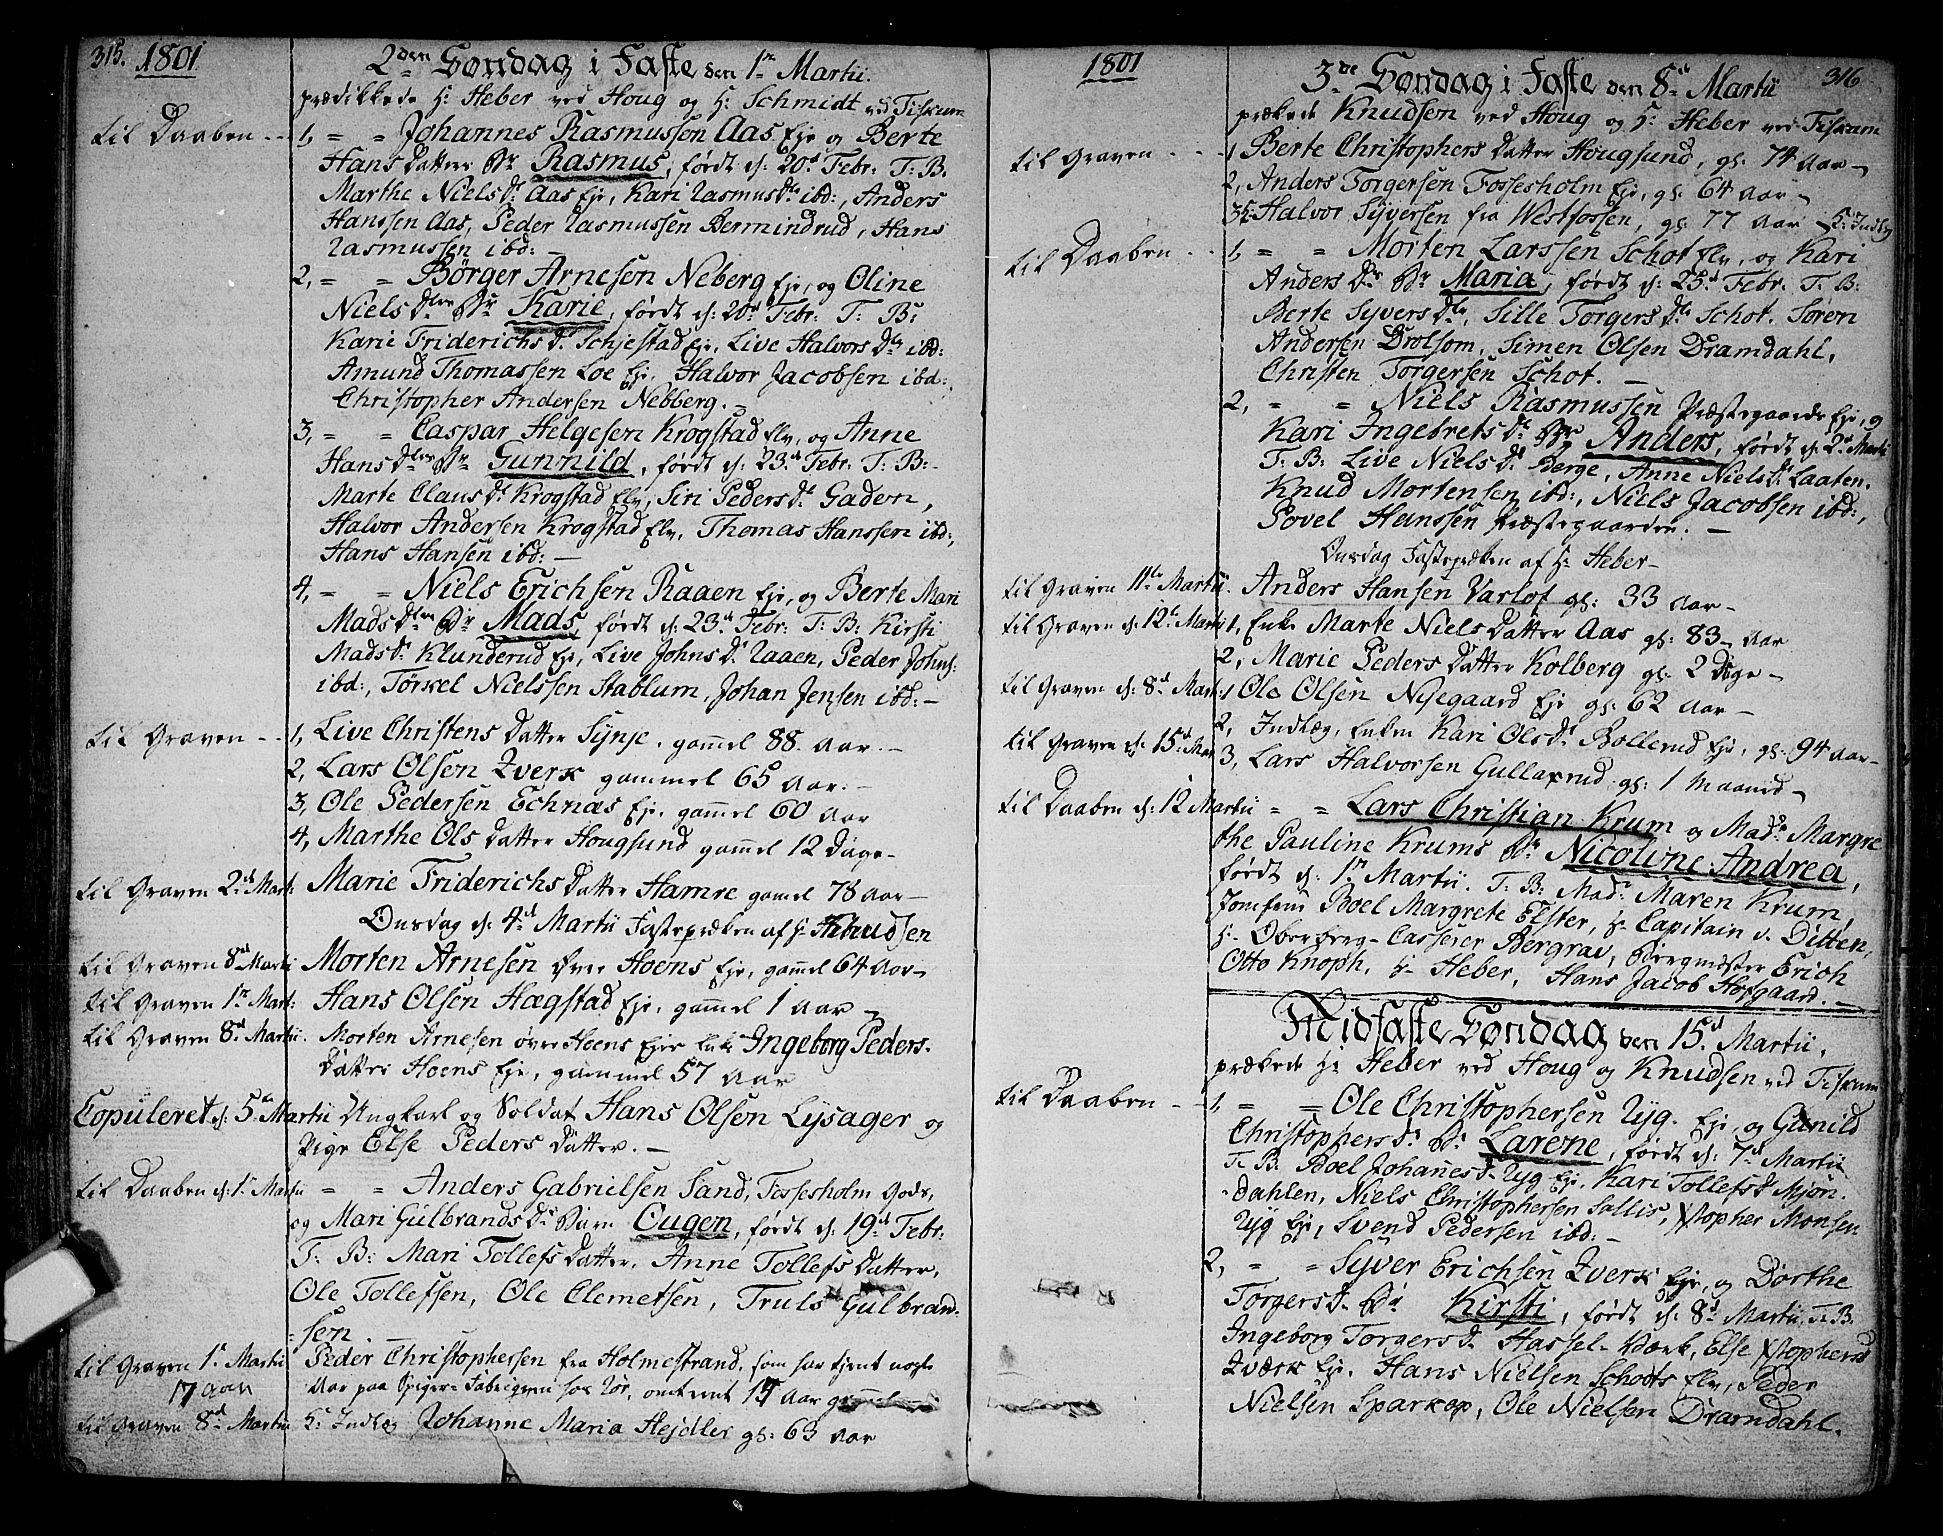 315. 1801
2den Søndag i Faste den 1te Martii.
prædikkede Hr Heber ved Houg og Hr Schmidt ved Fiskum
til Daaben - - 1, = = Johannes Rasmussøn Aas Eje og Berte
Hans Datters Br Rasmus, født d: 20d Febr. T: B.
Marthe Niels Dr Aas Eje, Kari Rasmus Dr ibd:, Anders
Hanssen Aas, Peder Rasmussen Bermindrud, Hans
Rasmussen ibd: -
2, = = Börger Arnesön Neberg Eje, og Oline
Niels Dters Br Karie, født d: 20d Febr: T: B:
Karie Friderichs Dr Schjestad Eje, Live Halvors Dr ibd:
Amund Thomassen Loe Eje, Halvor Jacobsen ibd:,
Christopher Andersen Nebberg. -
3, = = Caspar Helgesen Krogstad Elv, og Anne
Hans Dters Br Gunnild, født d: 23d Febr: T: B:
Marte Claus Dr Krogstad Elv, Siri Peders Dr Gaden,
Halvor Andersen Krogstad Elv, Thomas Hanssen ibd:,
Hans Hansen ibd: -
4, = = Niels Erichsen Raaen Eje, og Berte Mari
Mads Dters Br Mads, født d: 23d Febr: T: B: Kirsti
Mads Dr Klunderud Eje, Live Johns Dr Raaen, Peder Johns:
ibd:, Törkel Nielssen Stablum, Johan Jenssen ibd: -
til Graven - - 1, Live Christens Datter Synje, gammel 88 Aar. -
2, Lars Olsen Zverk gammel 65 Aar. -
3, Ole Pedersen Echnæs Eje, gammel 60 Aar
4, Marthe Ols Datter Hougsund gammel 12 Dage -
til Graven 2d Mart: Marie Friderichs Datter Hamre gammel 78 Aar -
Onsdag d: 4d Martii Fastepræken af Hr Knudsen
til Graven 8d Martii Morten Arnesen Øvre Hoens Eje, gammel 64 Aar -
til Graven 1te Mart: Hans Olsen Hægstad Eje, gammel 1 Aar -
til Graven 8d Martii. Morten Arnesen øvre Hoens Ejes Enke Ingeborg Peders-
Datter Hoens Eje, gammel 57 Aar
Copuleret d: 5te Martii Ungkarl og Soldat Hans Olsen Lysager og
Pige Else Peders Datter. -
til Daaben d: 1te Martii = = Anders Gabrielsen Sand, Fossesholm Gods,
og Mari Gulbrands Dr Barn Ougen, født d: 19d Febr:
T: B: Mari Tollefs Datter, Anne Tollefs Datter,
Ole Tollefsen, Ole Clemetsen, Truls Gulbrand-
sen.
til Graven 1te Martii Peder Christophersen fra Holmestrand, som har tjent nogle
17 Aar Aar paa Spiger-Fabriqven
til Graven 8d Martii Hr Indlæg Johanne Maria Hejdler gl: 63 Aar
1801
3de Søndag i Faste den 8d Martii 316
prækede Knudsen ved Houg og Hr Heber ved Fiskum
til Graven - - 1 Berte Christophers Datter Hougsund, gl: 74 Aar -
2, Anders Torgersen Fossesholm Eje, gl: 64 Aar -
3, Halvor Syversen fra Westfossen, gl: 77 Aar Hr: Indlæg
til Daaben - - 1, = = Morten Larssen Schot Elv, og Kari
Anders Dr Br Maria, født d: 23d Febr: T: B:
Berte Syvers Dr, Sille Torgers Dr Schot. Sören
Andersen Drolsom, Simen Olsen Dramdahl,
Christen Torgersen Schot. -
2, = = Niels Rasmussen Præstegaards Eje, og
Kari Ingebrets Dr Br Anders, født d: 2d Martii
T: B: Live Niels Dr Berge, Anne Niels Dr Laaten.
Knud Mortensen ibd:, Niels Jacobsen ibd:,
Povel Hanssen Præstegaarden. -
Onsdag Fastepræken af Hr Heber -
til Graven 11te Martii. Anders Hansen Varlof gl: 33 Aar -
til Graven d: 12te Martii 1, Enke Marte Niels Datter Aas gl: 83 Aar
2, Marie Peders Datter Kolberg gl: 2 Dage -
til Graven d: 8d Mart: 1 Ole Olsen Nyegaard Eje gl: 62 Aar -
2, Indlæg, Enken Kari Ols Dr Bollerud Eje, gl: 94 Aar -
til Graven d: 15d Mar 3, Lars Halvorsen Gullaxrud gl: 1 Maaned -
til Daaben d: 12 Martii = = Lars Christian Krum og Made Margre
the Pauline Krums Br Nicoline Andrea,
født d: 1te Martii. T: B: Made Maren Krum,
Jomfrue Boel Margrete Elster, Hr Capitain v. Ditten,
Hr Oberberg-Casserer Bergrav, Bergmester Erich
Otto Knoph, Hr Heber, Hans Jacob Hofgaard. -
Midfaste Søndag den 15d Martii,
prækede Hr Heber ved Houg og Knudsen ved Fiskum
til Daaben - - 1, = = Ole Christophersen Ryg Eje, og Gunild
Christophers Dr Br Larene, født d: 7d Martii
T: B: Boel Johanes Dr Ryg Eje, Kari Tollefs Dr Mjøn-
dahlen, Niels Christophersen Sallis, Xstopher Monsen
Ryg Eje, Svend Pedersen ibd: -
2, = = Syver Erichsen Zverk Eje, og Dorthe
Torgers Dr Br Kirsti, født d: 8d Martii, T: B:
Ingeborg Torgers Dr Hassel-Værk, Else Xstophers D
Zværk Eje. Hans Nielsen Schots Elv, Peder
Nielsen Sparkop, Ole Nielsen Dramdahl.